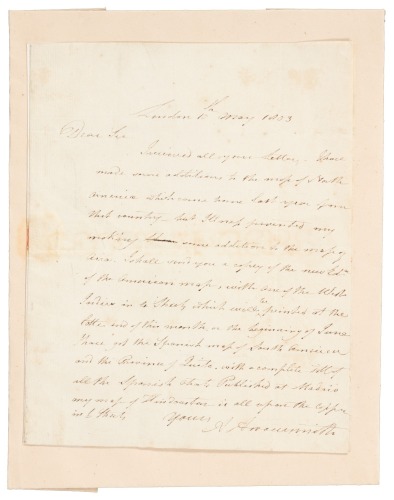 London 11th May 1803
Dear Sir
I received all your Letters, I have
made some additions to the map of North
America which came home last year from
that country, but Illness prevented my
making some additions to the map of
. I shall send you a copy of the new Edn
of the American map, with one of the West
Indies in 4 Sheets which will be printed at the
latter end of this month or the beginning of June
I have got the Spanish map of South America
and the Province of Quito, with a complete set of
all the Spanish charts Published at Madrid
my map of Hindoostan is all upon the Copper
in sheets
Yours
A Arrowsmith